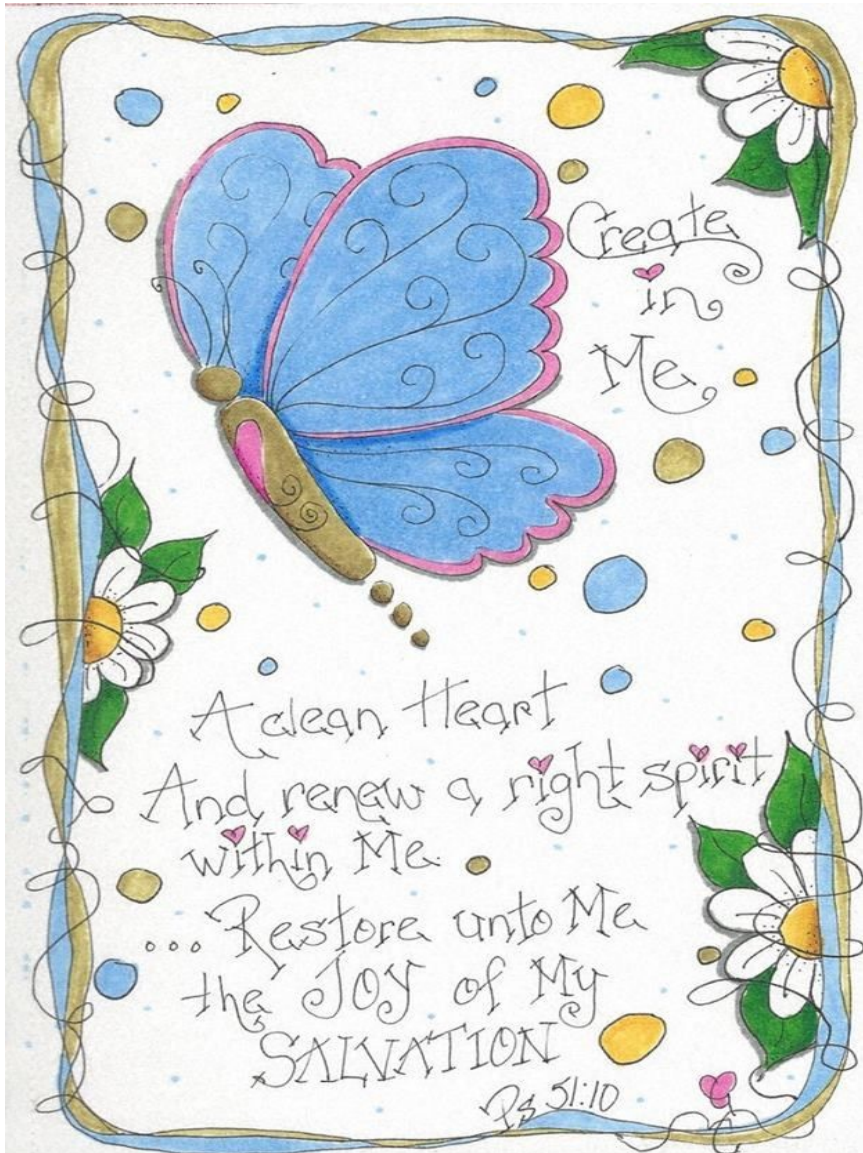 Create
in
Me
A clean Heart
And renew a right spirit
within Me
... Restore unto Me
the Joy of My
SALVATION
Ps 51:10